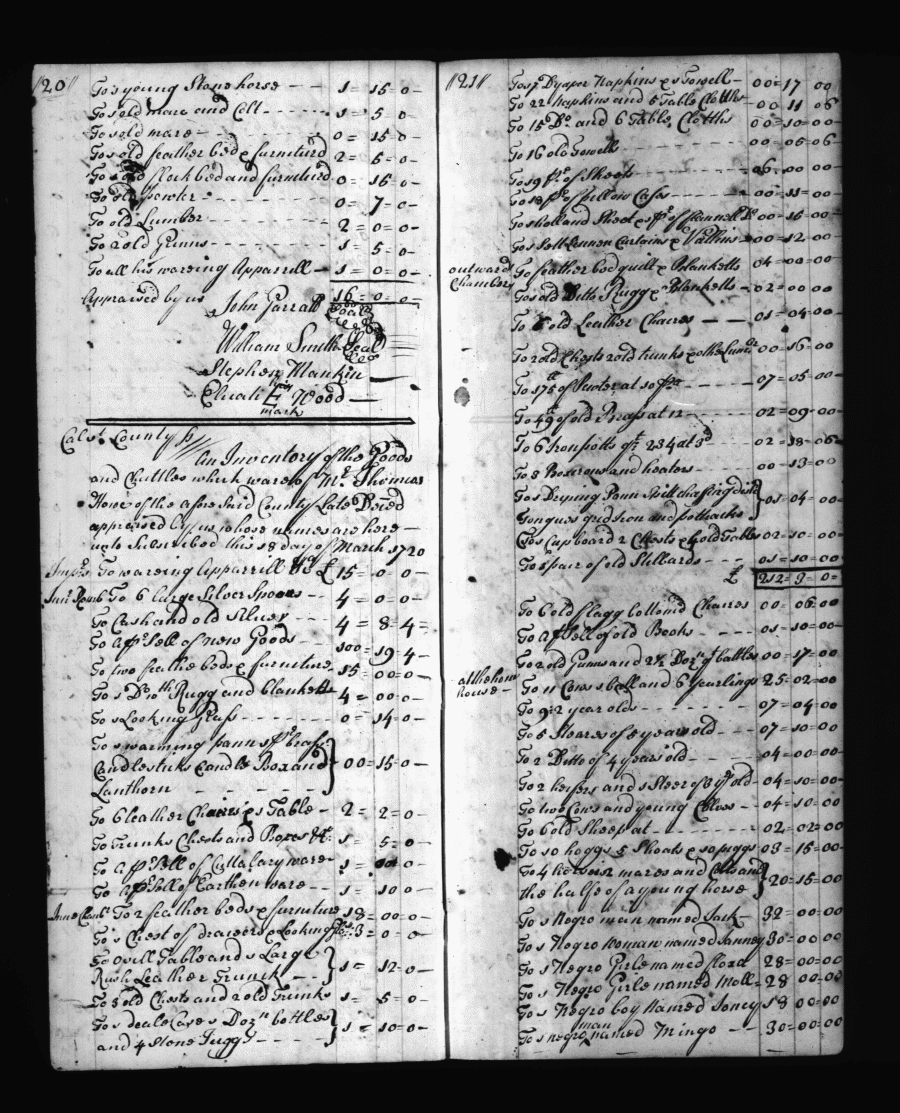 "20"
To 1 young Stone horse 1 = 15 = 0
To 1 old mare and Colt 1 = 5 = 0
To 1 old mare 0 = 15 = 0
To 1 old feather bed & furniture 2 = 5 = 0
To 1 old flock bed and furniture 0 = 15 = 0
To old pewter 0 = 7 = 0
To old Lumber 2 = 0 = 0
To 2 old Gunns 1 = 5 = 0
To all his wareing Apparrill 1 = 0 = 0
16 = 0 = 0
Appraised by us John Garratt Seal
William Smith Seal
Stephen Mankin
his
Wood
mark
Calvt. County ss
An Inventory of the Goods
and Chattles which ware of Mr. Thomas
of the afore said County Late Deced
appraised by us whose names are here
unto Subscribed this 18 day of March 1720
Imps. To wareing Apparrill £ 15 = 0 = 0
Innr. Roomb To 6 Large Silver Spoons 4 = 0 = 0
To Cash and old Silver 4 = 8 = 4
To a p.sell of new Goods 100 = 19 = 4
To two feather beds & furniture 15 = 00 = 0
To 1 Do. wth Rugg and blankett 4 = 00 = 0
To 1 Looking Glass 0 = 14 = 0
To 1 warming pann 1 pr. brass
Candlesticks Candle Box and
Lanthorn 00 = 15 = 0
To 6 leather Chairs & 1 Table 2 = 2 = 0
To Trunks Chests and Boxes &c. 1 = 5 = 0
To a p.sell of Cuttalary ware 1 =
To a p.sell of Earthen ware 1 = 10 0
Inne Chamb. To 2 feather beds & furniture 18 = 00 = 0
To 1 Chest of drawers & Looking Glass 3 = 0 = 0
To Ovill Table and 1 Large
Rush Leather Trunk 1 = 12 = 0
To 3 old Chests and 2 old Trunks 1 = 5 = 0
To 1 deale Case 1 Dozn. bottles
and 4 Stone Juggs 1 = 10 = 0
"21"
To 17 Dyaper Napkins & 1 Towell 00 = 17 00
To 22 Napkins and 5 Table Cloths 00 11 06
To 15 Do. and 6 Table Cloths 00 = 10 = 00
To 16 old Towells 00 05 = 06
To 9 pr. of Sheets 06 = 00 = 00
To 18 ps. of pillow Cases 00 = 11 = 00
To 1 holland Sheet & ps. of flannell &c. 00 = 15 = 00
To 1 Sett Lennen Curtains & Vallins 00 = 12 = 00
outward
Chamber
To feather bed quilt & Blanketts 04 = 00 = 00
To 1 old Ditto Rugg & Blanketts 02 = 00 = 00
To 6 old Leather Chaires 01 = 04 = 00
To 2 old Chests 2 old trunks & other Lumbr. 00 = 16 = 00
To 175 lb of Pewter at 10 p. 07 = 05 = 00
To 49 lb of old Brass at 12 02 = 09 = 00
To 6 Iron potts qt. 234 at 3d 02 = 18 = 06
To 3 Box irons and heators 00 = 13 = 00
To 1 Drying Pann Spitt chafing dish
Tonguss gridiron and pothucks 01 = 04 = 00
To 1 Cupboard 2 Chests & 1 old Table 02 = 10 = 00
To 1 pair of old Stilliards 01 = 10 = 00
£ 212 = 9 = 0
To 6 old flagg bottomd Chaires 00 = 06 = 00
To a p.sell of old Books 01 = 10 = 00
To 2 old Gunns and 2½ Dozn. qt. bottles 00 = 17 = 00
at the hom
house
To 11 Cows 1 bull and 6 yearlings 25 = 02 = 00
To 9: 2 year olds 07 = 04 = 00
To 5 Steares of 5 years old 07 = 10 = 00
To 2 Ditto of 4 years old 04 = 00 = 00
To 2 heifers and 1 Steer of 3 yr. old 04 = 10 = 00
To two Cows and young Calves 04 = 10 = 00
To 6 old Sheep at 02 = 02 = 00
To 10 hoggs 5 Shoats & 10 piggs 03 = 15 = 00
To 4 horses 2 mares and Colts and
the halfe of a young horse 20 = 15 = 00
To 1 Negro man named Jack 32 = 00 = 00
To 1 Negro Woman named Nanney 30 = 00 = 00
To 1 Negro Girle named flora 28 = 00 = 00
To 1 Negro Girle named Moll 28 00 = 00
To 1 Negro boy Named Toney 18 = 00 = 00
To 1 negro man named Mingo 30 = 00 = 00